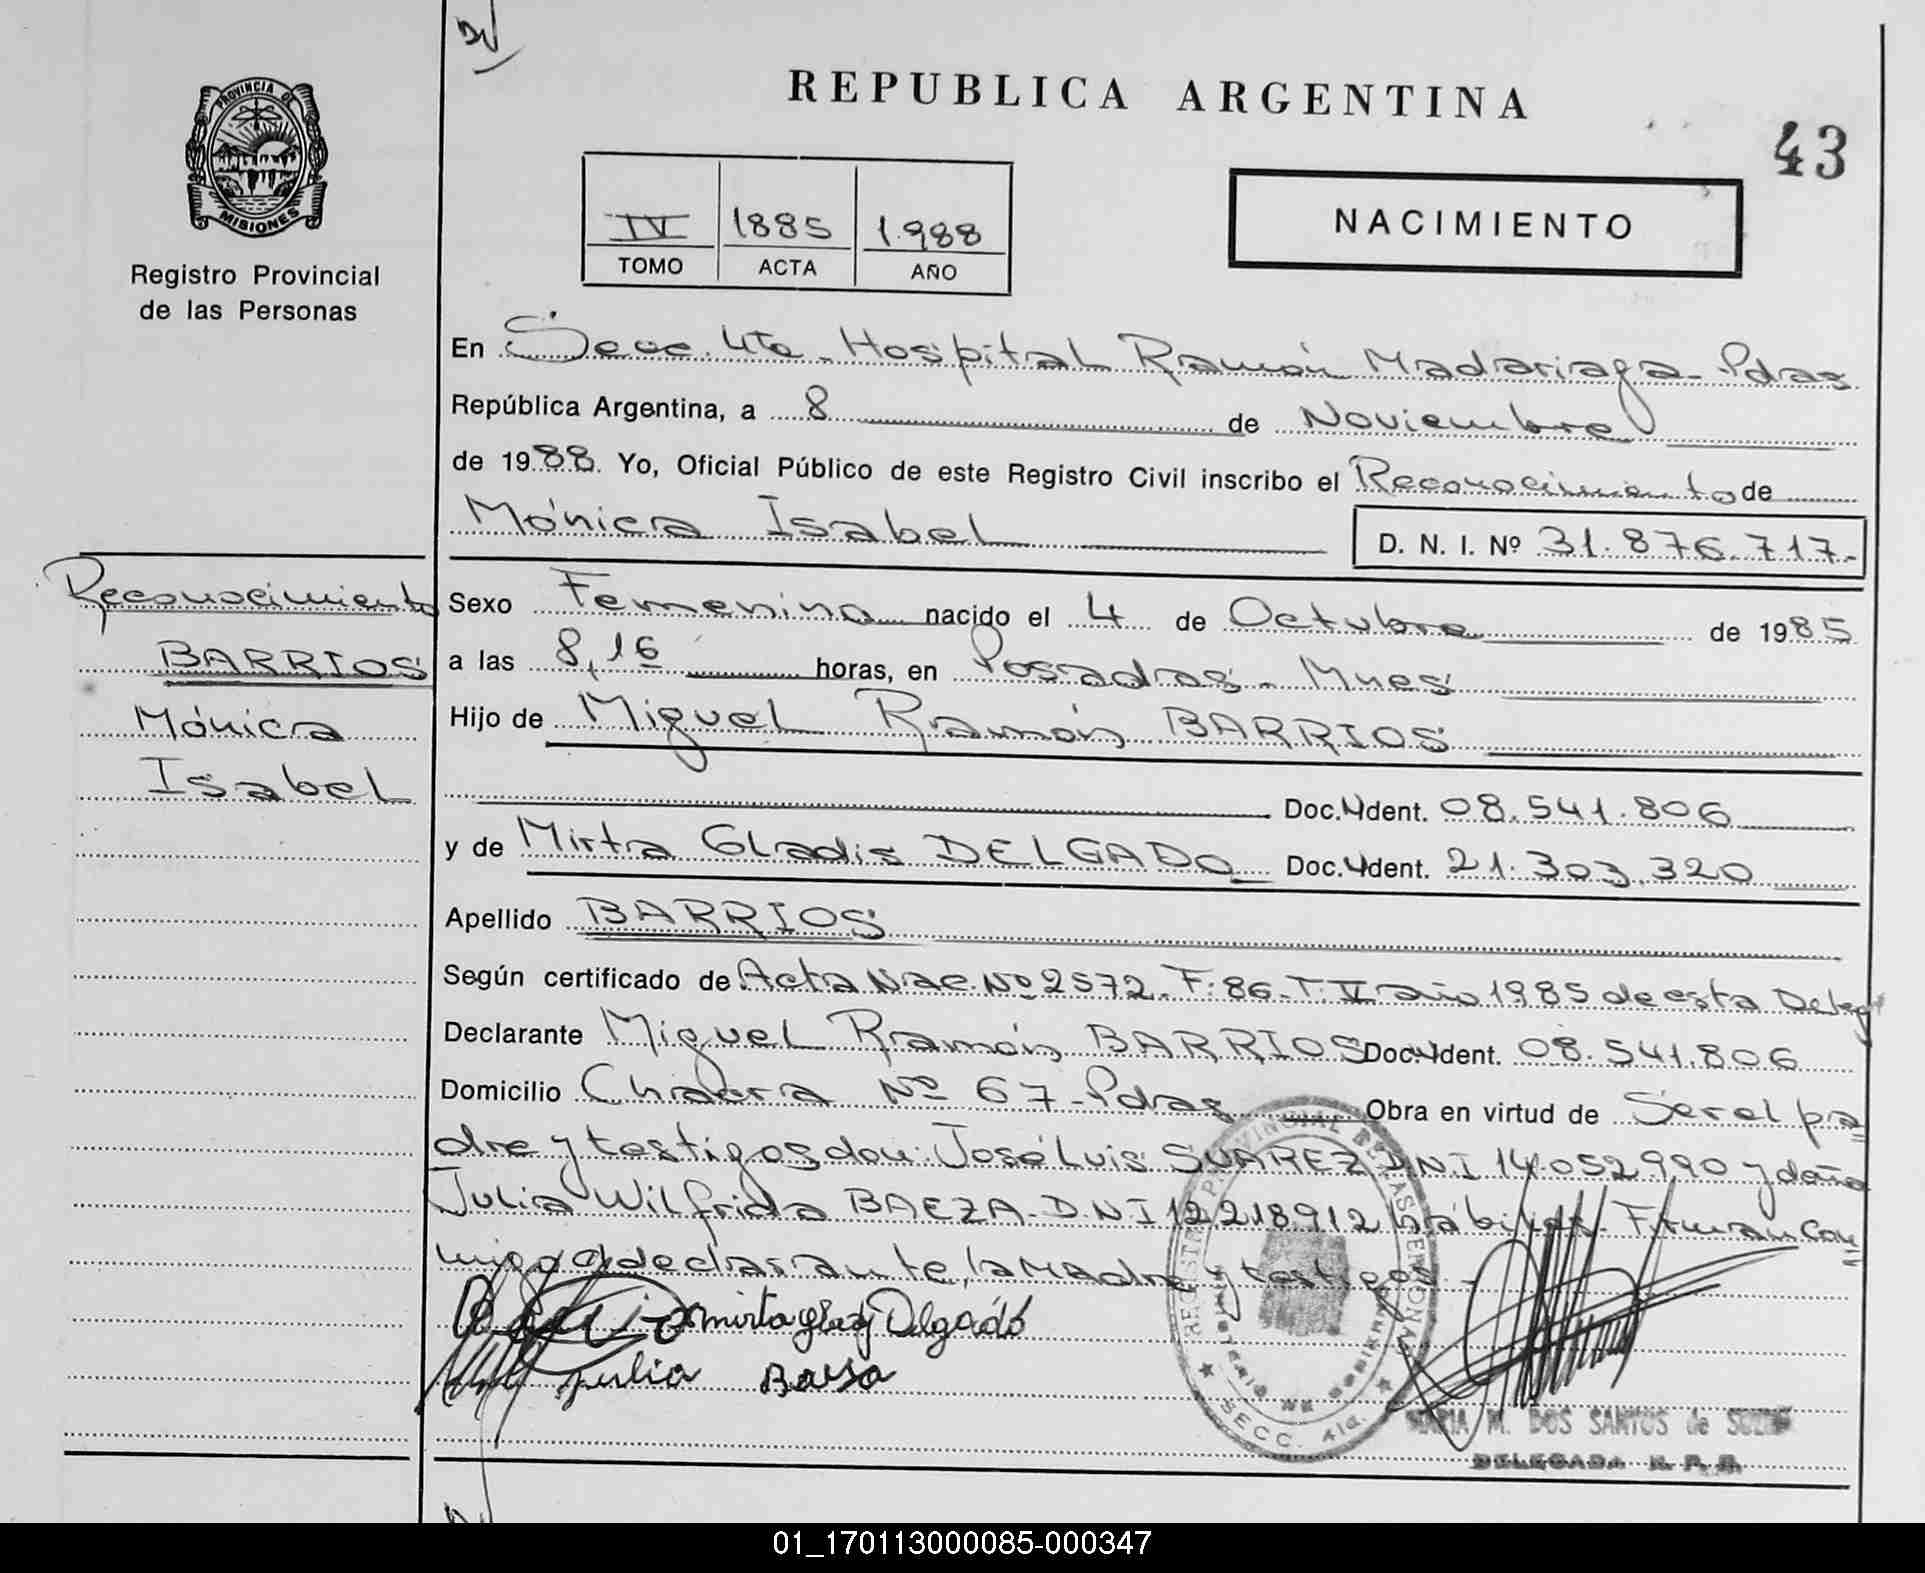 PROVINCIA DE
MISIONES
Registro Provincial
de las Personas
REPUBLICA ARGENTINA
43
IV 1885 1.988
TOMO ACTA AÑO
NACIMIENTO
En Secc. 4ta - Hospital Ramón Madariaga - Pdas
República Argentina, a 8 de Noviembre
de 1988. Yo, Oficial Público de este Registro Civil inscribo el Reconocimiento de
Mónica Isabel D. N. I. Nº 31.876.717.-
Reconocimiento
BARRIOS
Mónica
Isabel
Sexo Femenino nacido el 4 de Octubre de 1985
a las 8,16 horas, en Posadas - Mnes
Hijo de Miguel Ramón BARRIOS
Doc. Ident. 08.541.806
y de Mirta Gladis DELGADO Doc. Ident. 21.303.320
Apellido BARRIOS
Según certificado de Acta Nac. Nº 2572 - F: 86 - T. V año 1985 de esta Deleg
Declarante Miguel Ramón BARRIOS Doc. Ident. 08.541.806
Domicilio Chacra Nº 67 - Pdas Obra en virtud de Ser el pa
dre y testigos don: José Luis SUAREZ D.N.I 14.052.990 y doña
Julia Wilfrida BAEZA - D.N.I 12218912 hábiles - Firman Con
migo el declarante, la Madre y testigos -
mirta glady Delgado
Julia Baesa
REGISTRO PROVINCIAL DE LAS PERSONAS
SECC. 4ta.
MARIA M. DOS SANTOS de
DELEGADA R. P. P.
01_170113000085-000347